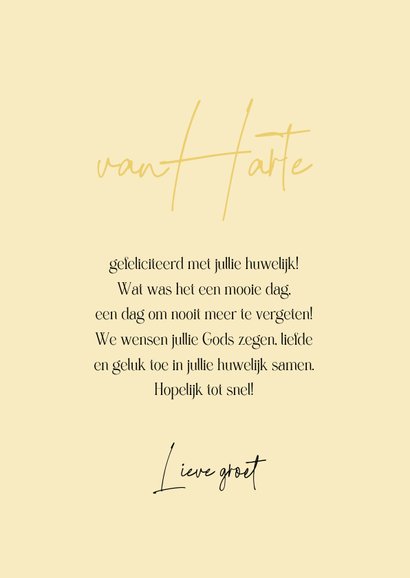 van Harte
gefeliciteerd met jullie huwelijk!
Wat was het een mooie dag,
een dag om nooit meer te vergeten!
We wensen jullie Gods zegen, liefde
en geluk toe in jullie huwelijk samen.
Hopelijk tot snel!
Lieve groet